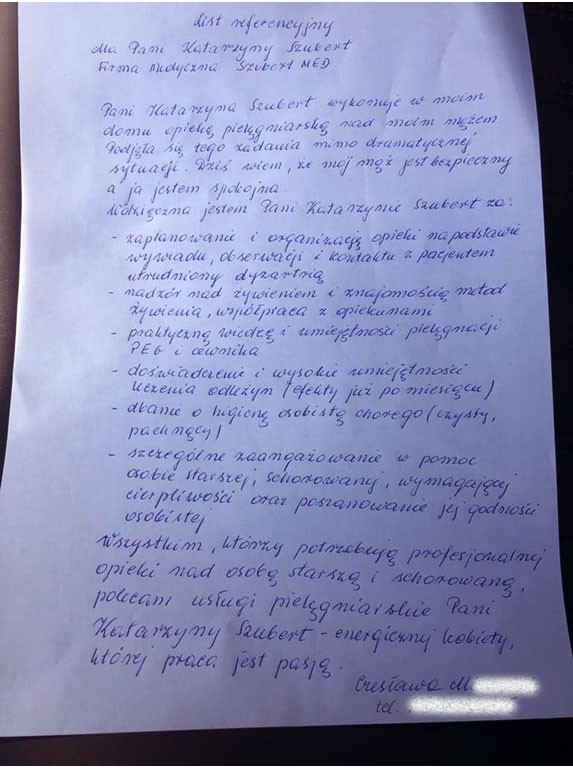 List referencyjny
dla Pani Katarzyny Szubert
Firma Medyczna Szubert MED
Pani Katarzyna Szubert wykonuje w moim
domu opiekę pielęgniarską nad moim mężem.
Podjęła się tego zadania mimo dramatycznej
sytuacji. Dziś wiem, że mój mąż jest bezpieczny
a ja jestem spokojna.
Wdzięczna jestem Pani Katarzynie Szubert za:
- zaplanowanie i organizację opieki na podstawie
wywiadu, obserwacji i kontaktu z pacjentem
utrudniony dyzartrią
- nadzór nad żywieniem i znajomością metod
żywienia, współpraca z opiekunami
- praktyczną wiedzę i umiejętności pielęgnacji
PEG i cewnika
- doświadczenie i wysokie umiejętności
leczenia odleżyn (efekty już po miesiącu)
- dbanie o higienę osobistą chorego (czysty,
pachnący)
- szczególne zaangażowanie w pomoc
osobie starszej, schorowanej, wymagającej
cierpliwości oraz poszanowanie jej godności
osobistej
Wszystkim, którzy potrzebują profesjonalnej
opieki nad osobą starszą i schorowaną,
polecam usługi pielęgniarskie Pani
Katarzyny Szubert - energicznej kobiety,
której praca jest pasją.
Czesława M
tel.